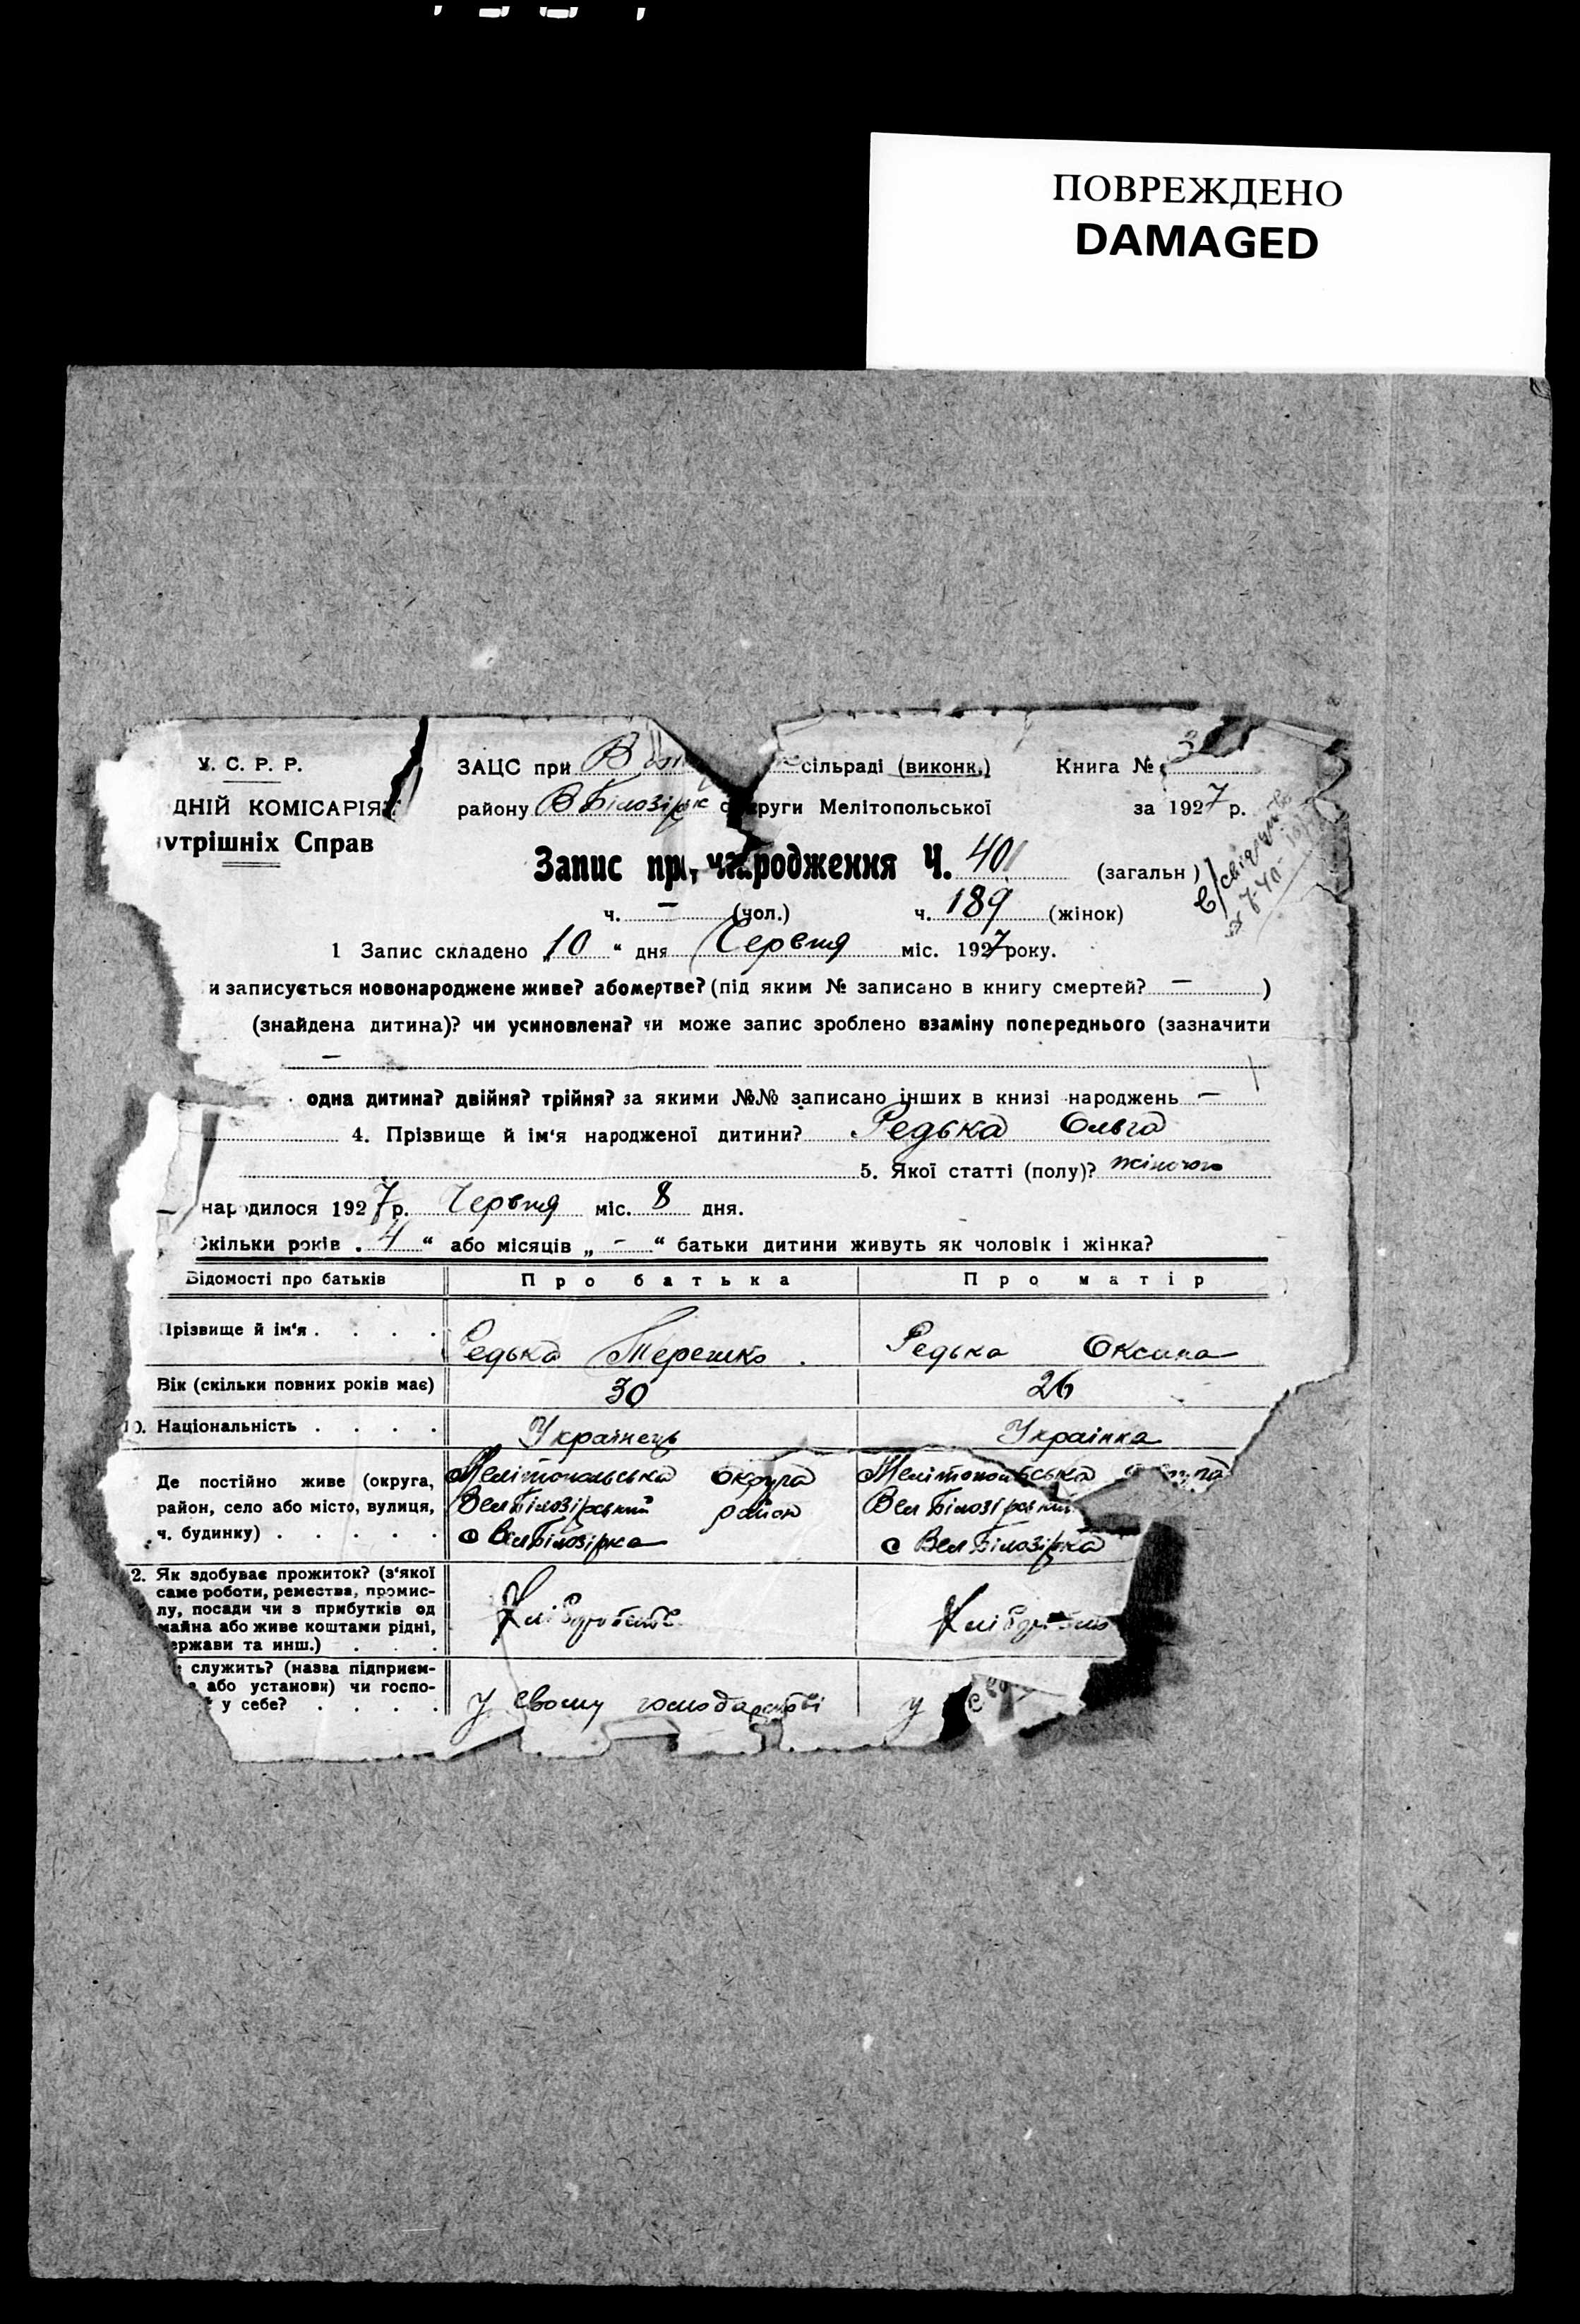 ПОВРЕЖДЕНО
DAMAGED
У. С. Р. Р.
ЗАЦС при сільраді (виконк.) Книга № 3
ДНІЙ КОМІСАРІЯ
району В Білозірськ округи Мелітопольської за 1927 р.
утрішніх Справ
Запис про народження Ч. 401 (загальн)
ч. — (чол.) ч. 189 (жінок)
1 Запис складено „10“ дня Червня міс. 1927 року.
и записується новонароджене живе? або мертве? (під яким № записано в книгу смертей? — )
(знайдена дитина)? чи усиновлена? чи може запис зроблено взаміну попереднього (зазначити
—
одна дитина? двійня? трійня? за якими №№ записано інших в книзі народжень —
4. Прізвище й ім'я народженої дитини? Редька Ольга
5. Якої статті (полу)? жіночого
народилося 1927 р. Червня міс. 8 дня.
Скільки років „4“ або місяців „—“ батьки дитини живуть як чоловік і жінка?
Відомості про батьків Про батька Про матір
Прізвище й ім'я . . . . Редька Терешко. Редька Оксана
Вік (скільки повних років має) 30 26
10. Національність . . . . Українець Українка
Де постійно живе (округа, Мелітопольська округа Мелітопольська округа
район, село або місто, вулиця, Вел Білозірський район Вел Білозірський
ч. будинку) . . . . . с Вел Білозірка с Вел Білозірка
2. Як здобуває прожиток? (з'якої
саме роботи, ремества, промис-
лу, посади чи з прибутків од Хліборобство Хліборобство
майна або живе коштами рідні,
ержави та инш.) . . .
служить? (назва підприєм-
або установи) чи госпо-
у себе? . . . . У свому господарстві у сво